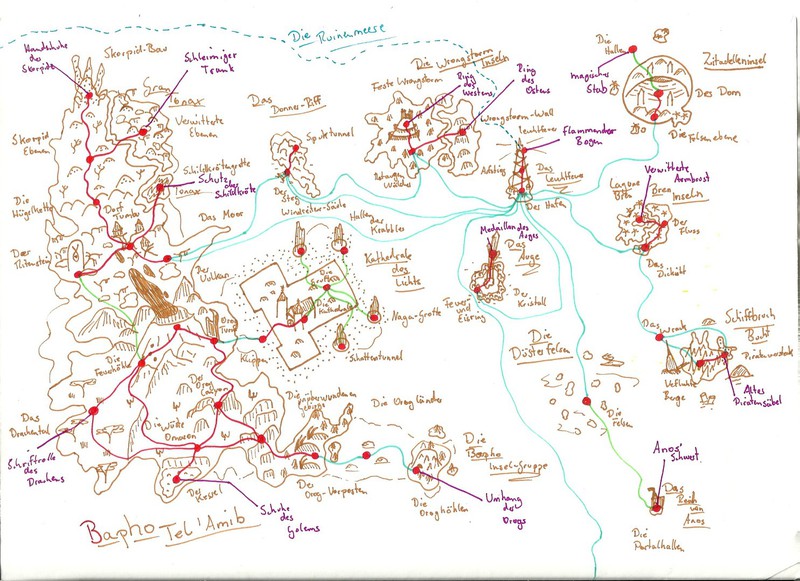 Die Ruinenmeere
Handschuhe
des
Skorpids
Skorpid-Bau
Schleimiger
Trank
Gran
Tonax
Verwitterte
Ebenen
Skorpid
Ebenen
Schildkrötengrotte
Schutz
der
Schildkröte
Tonax
Die
Hügelkette
Dorf
Tumba
Das Moor
Der
Ritenstein
Der
Vulkan
Das
Donner-Riff
Spuktunnel
Der
Steg
Windrecker-Säule
Die Wrongstorm
Inseln
Feste Wrongstorm
Ring
des
Westens
Ring
des
Ostens
Wrongstorm-Wall
Leuchtfeuer
Flammender
Bogen
Das
Leuchtfeuer
Der Hafen
Die
Hallen
magischer
Stab
Zitadelleninsel
Der Dorn
Die
Felsenebene
Verwitterte
Armbrust
Inseln
Der
Fluss
Das
Dickicht
Hallen
der
Krabbler
Kathedrale
des
Lichts
Die
Gruft
Die
Kathedrale
Naga-Grotte
Schattentunnel
Klippen
Medaillon des
Auges
Das
Auge
Der
Kristall
Feuer
und
Eisring
Die
Düsterfelsen
Die
Felsen
Das
Wrack
Schiffbruch
Bucht
Piratenversteck
Verfluchte
Berge
Altes
Piratensäbel
Anos'
Schwert
Das
Reich
von
Anos
Die
Portalhallen
Die
Feuerhöhle
Das
Drachental
Schriftrolle
des
Drachens
Der
Orog
Canyon
Die Wüste
Omoron
Der
Kessel
Schuhe
des
Golems
Die
unüberwundenen
Gebirge
Die Orogländer
Der
Orog-Vorposten
Die
Bapho
Insel-Gruppe
Die
Oroghöhlen
Umhang
der
Orogs
Bapho Tel'Amib